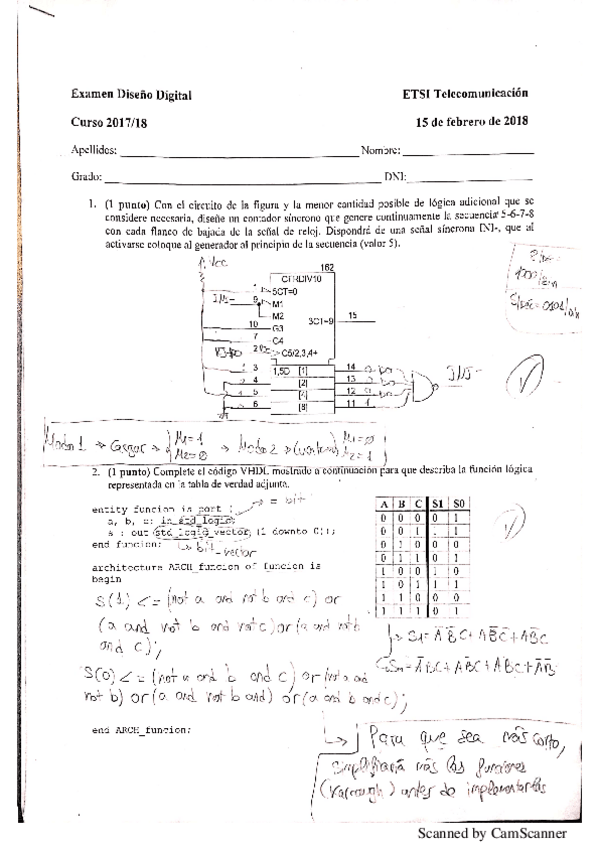 Examen Diseño Digital
ETSI Telecomunicación
Curso 2017/18
15 de febrero de 2018
Apellidos: Nombre:
Grado: DNI:
1. (1 punto) Con el circuito de la figura y la menor cantidad posible de lógica adicional que se
considere necesaria, diseñe un contador síncrono que genere continuamente la secuencia 5-6-7-8
con cada flanco de bajada de la señal de reloj. Dispondrá de una señal síncrona INI-, que al
activarse coloque al generador al principio de la secuencia (valor 5).
Vcc
162
CTRDIV10
1 5CT=0
INI- 9 M1
M2
3CT=9 15
10 G3
7 C4
2 C5/2,3,4+
3 1,5D [1] 14
4 [2] 13
5 [4] 12
6 [8] 11
INI-
Modo 1 → Cargar → M1=1 M2=0 → Modo 2 → M1=0 M2=1
2. (1 punto) Complete el código VHDL mostrado a continuación para que describa la función lógica
representada en la tabla de verdad adjunta.
= bit
entity funcion is port (
a, b, c: in std_logic;
s : out std_logic_vector (1 downto 0));
end funcion;
bit_vector
architecture ARCH_funcion of funcion is
begin
A B C S1 S0
0 0 0 0 1
0 0 1 1 1
0 1 0 0 0
0 1 1 0 1
1 0 0 1 0
1 0 1 1 1
1 1 0 0 0
1 1 1 0 1
S(1) <= (not a and not b and c) or
(a and not b and not c) or (a and not b
and c);
S(0) <= (not a and b and c) or (not a and
not b) or (a and not b and) or (a and b and c);
end ARCH_funcion;
Para que sea más corto,
simplificaría más las funciones
antes de implementarlas
Scanned by CamScanner